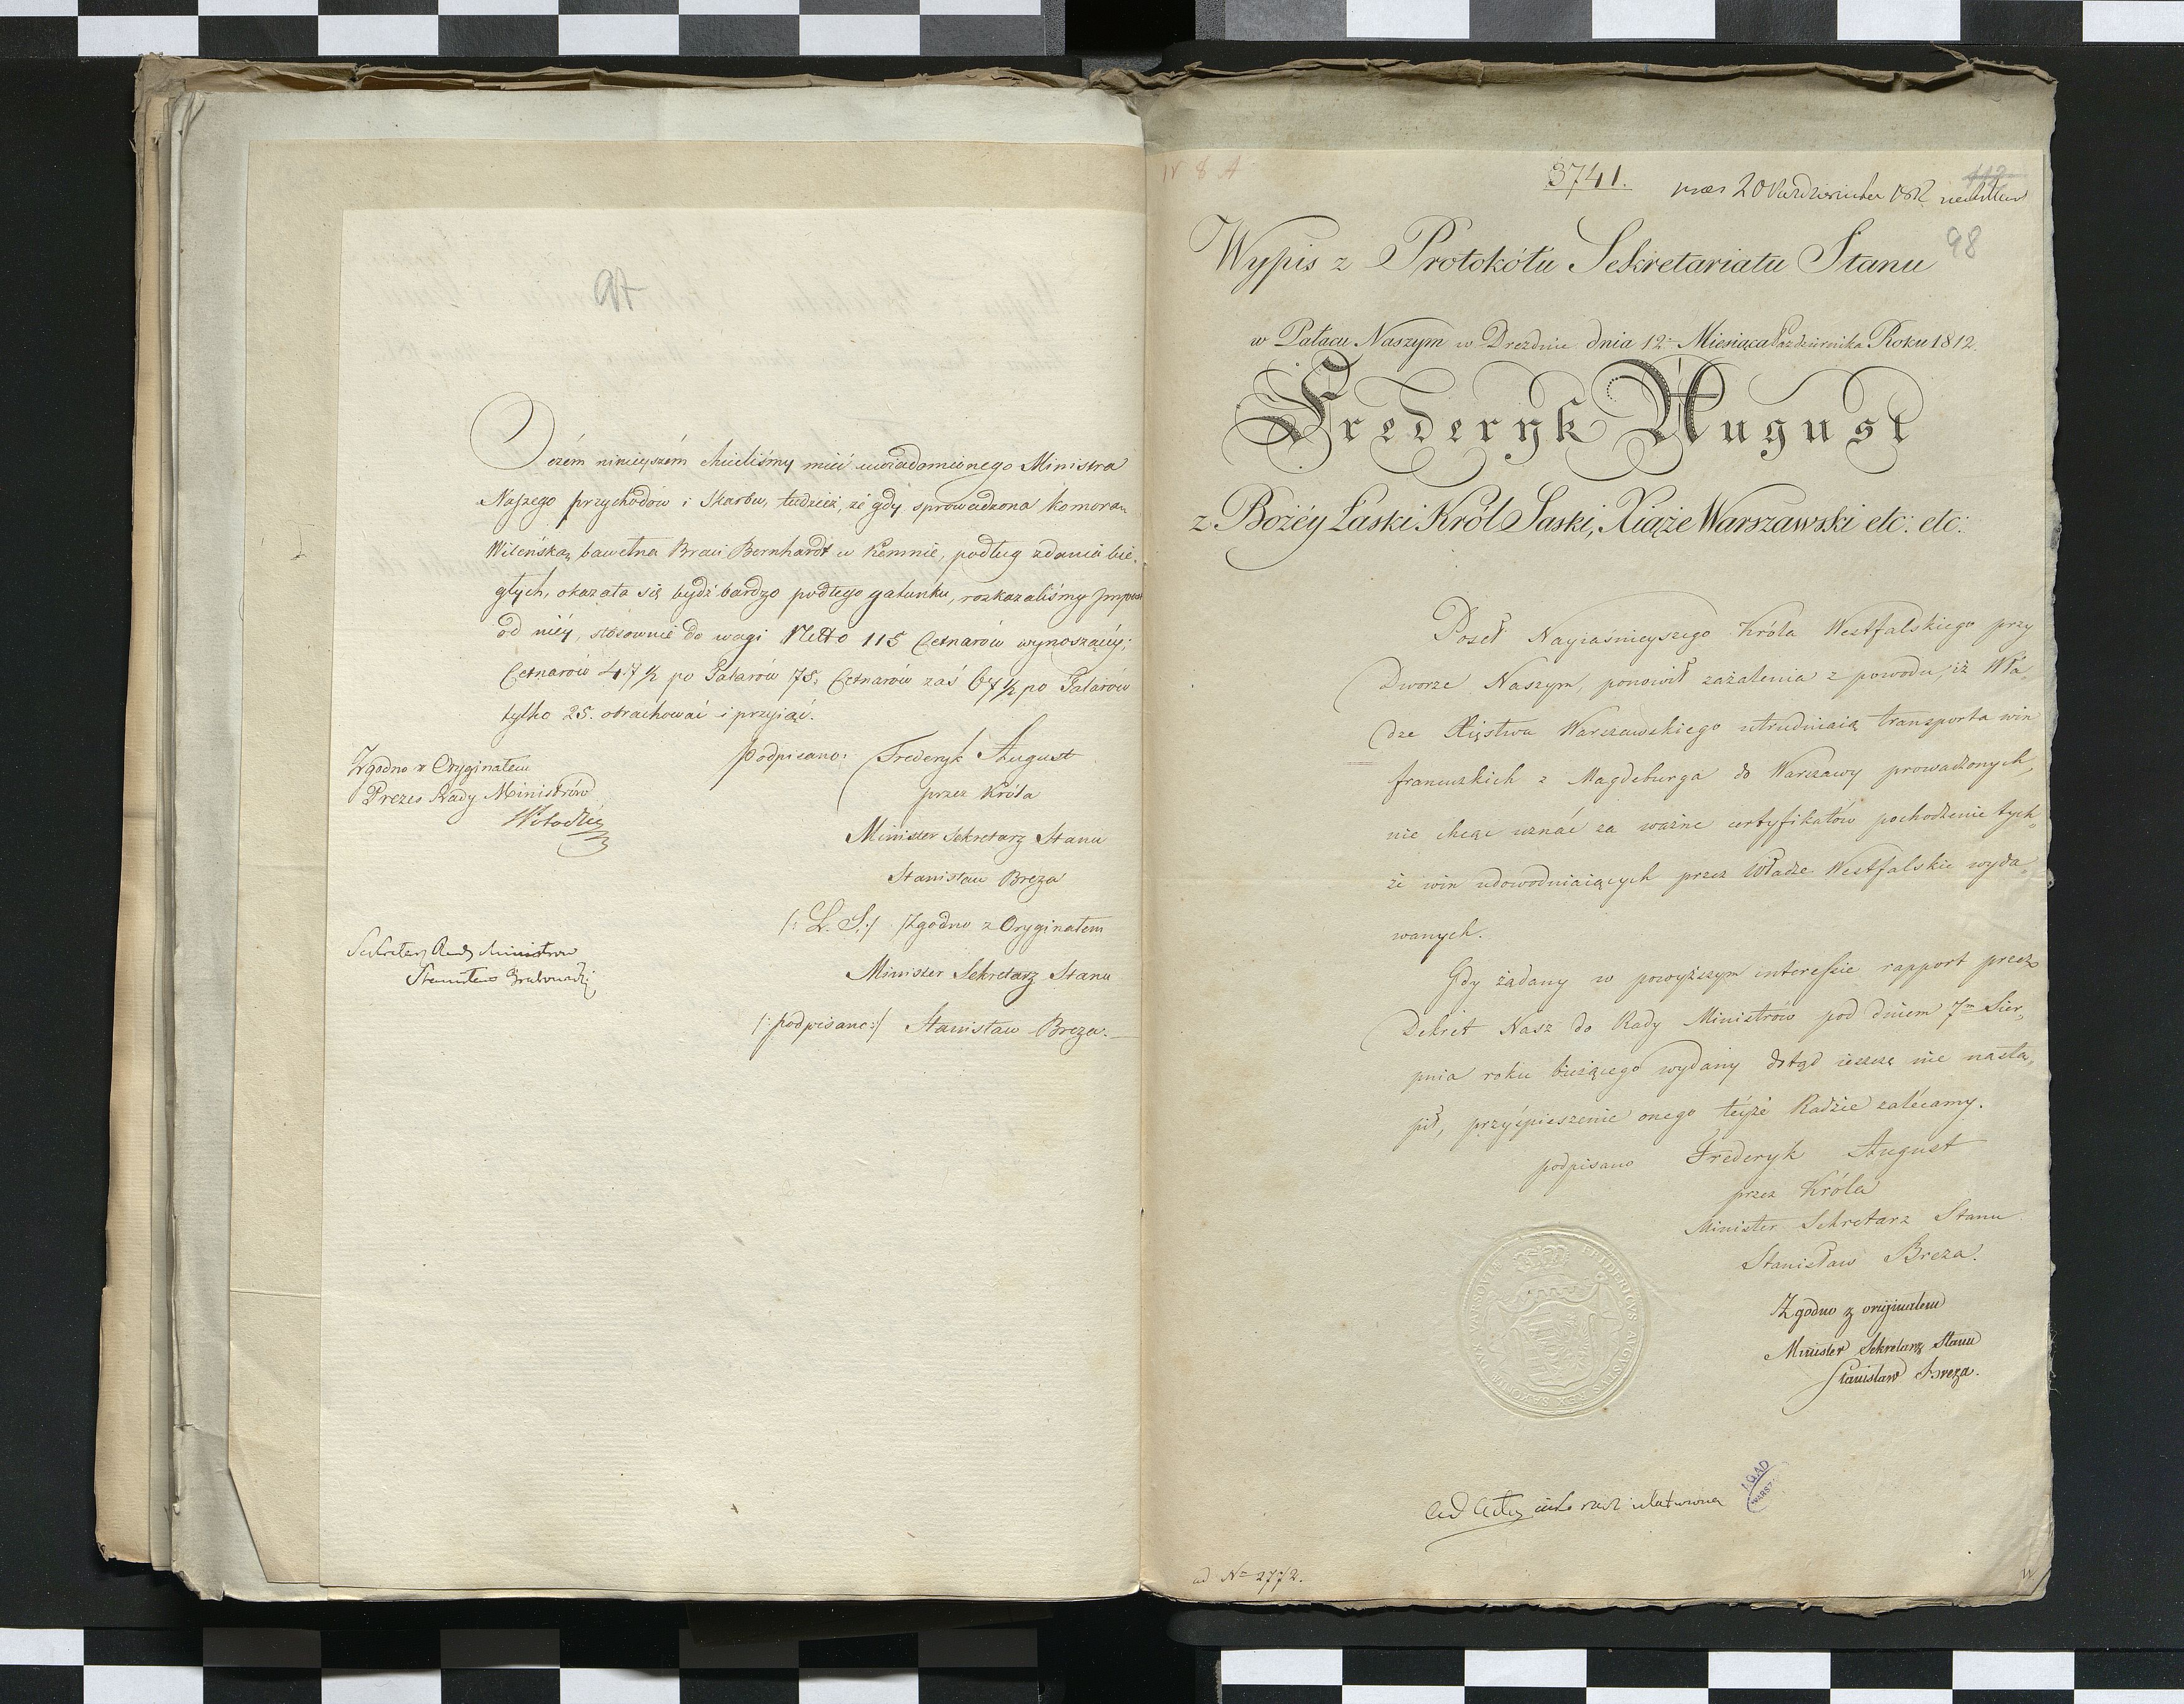 97
O czém ninieyszém chcieliśmy mieć uwiadomionego Ministra
Naszego przychodów i Skarbu, tudzież, że gdy sprowadzona komorą
Wileńską bawełna Braci Bernhardt w Kemnie, podług zdania bie-
głych, okazała się bydź bardzo podłego gatunku, rozkazaliśmy Impost
od niéy, stósownie do wagi Netto 115 Cetnarów wynoszącéy;
Cetnarów 47 1/2 po Talarów 75, Cetnarów zaś 67 1/2 po Talarów
tylko 25. obrachować i przyiąć.
podpisano: Frederyk August
przez Króla
Minister Sekretarz Stanu
Stanisław Breza
/: L. S. :/ Zgodno z Oryginałem
Minister Sekretarz Stanu
/: podpisano :/ Stanisław Breza.
Zgodno z Oryginałem
Prezes Rady Ministrów
Sekretarz Rady Ministrow
Stanisław Grabowski
IV 8 A
3741.
20 Października 1812
112
98
Wypis z Protokółu Sekretariatu Stanu
w Pałacu Naszym w Dreźnie dnia 12. Miesiąca Października Roku 1812.
Frederyk August
z Bożéy Łaski Król Saski, Xiąże Warszawski etc: etc:
Poseł Nayiaśnieyszego Króla Westfalskiego przy
Dworze Naszym, ponowił zażalenia z powodu, iż Wła„
dze Xięstwa Warszawskiego utrudniaią transporta win
francuzkich z Magdeburga do Warszawy prowadzonych,
nie chcąc uznać za ważne certyfikatów pochodzenie tych„
że win udowodniaiących przez Władze Westfalskie wyda„
wanych.
Gdy żądany w powyższym interessie rapport przez
Dekret Nasz do Rady Ministrów pod dniem 7m Sier„
pnia roku bieżącego wydany dotąd ieszcze nie nastą„
pił, przyśpieszenie onego téyże Radzie zalécamy.
podpisano Frederyk August
przez Króla
Minister Sekretarz Stanu
Stanisław Breza.
Zgodno z oryginałem
Minister Sekretarz Stanu
Stanisław Breza.
FRIDERICVS AVGVSTVS REX SAXONIAE DVX VARSOVIAE
ad Acta
AGAD
WARSZ
ad No 2772.